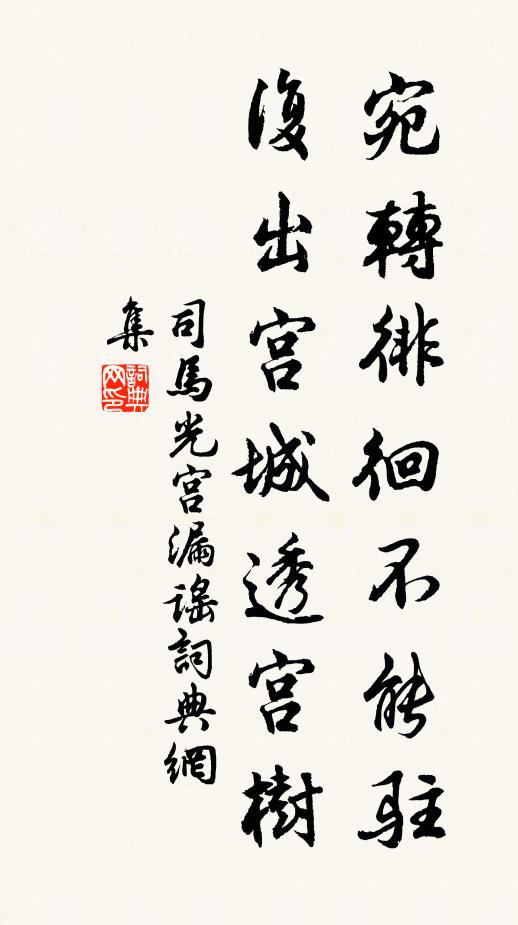 宛轉徘徊不能駐
復出宫城透宫樹
司馬光宫漏謠詞典網
集
詞典网印